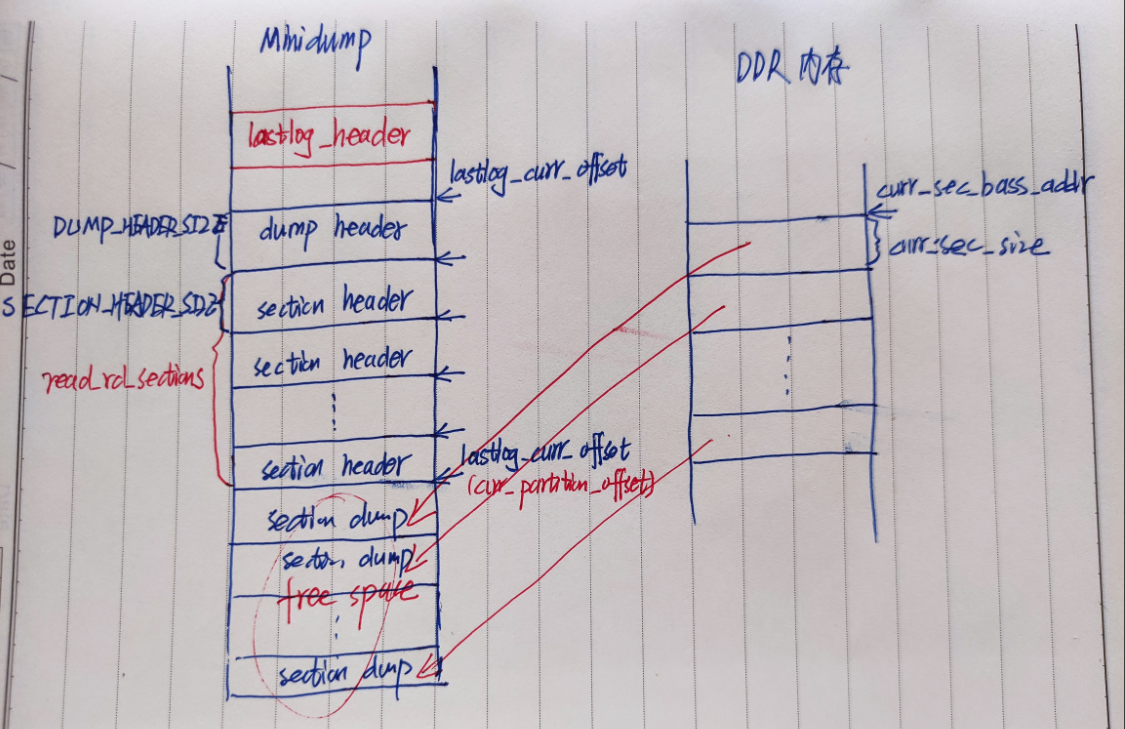 Minidump
DDR 内存
lastlog_header
lastlog_curr_offset
curr_sec_bass_addr
DUMP_HEADER_SIZE
dump header
curr_sec_size
SECTION_HEADER_SIZE
section header
section header
read_rd_sections
section header
lastlog_curr_offset
(curr_partition_offset)
section dump
section dump
free space
section dump
Date